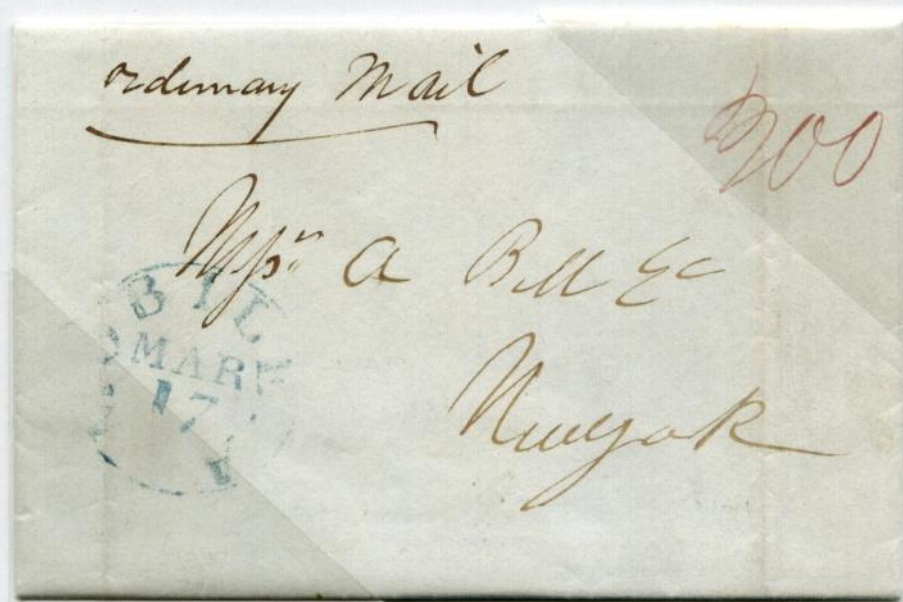 ordinary Mail
$200
Mess<sup>rs</sup> A Bell & Co
New York
BIL
MAR
17